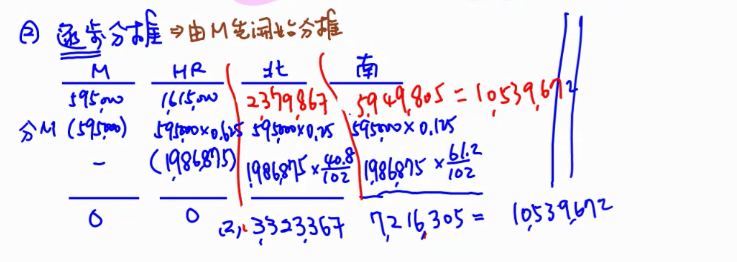 ② 逐步分摊 ⇒由M先开始分摊
M HR 北 南
595,000 1,615,000 2,379,867 5,949,805 = 10,539,672
分M (595000) 595000×0.625 595000×0.25 595000×0.125
- (1,986,875) 1,986,875×40.8/102 1,986,875×61.2/102
0 0 3,323,367 7,216,305 = 10,539,672